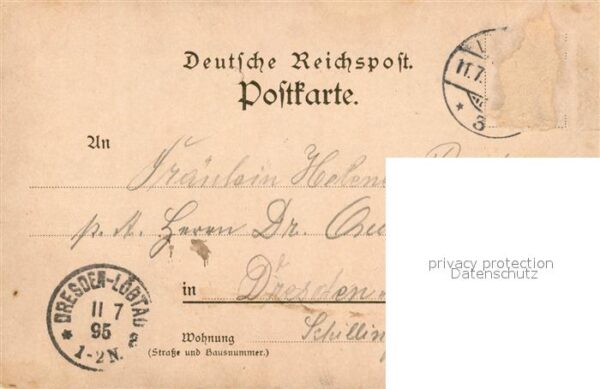 Deutsche Reichspost.
Postkarte.
11.7.
* 3
An
Fräulein Helene
p. A. Herrn Dr.
in Dresden
Wohnung Schilling
(Straße und Hausnummer.)
* DRESDEN-LÖBTAU
11 7
95
1-2 N.
privacy protection
Datenschutz